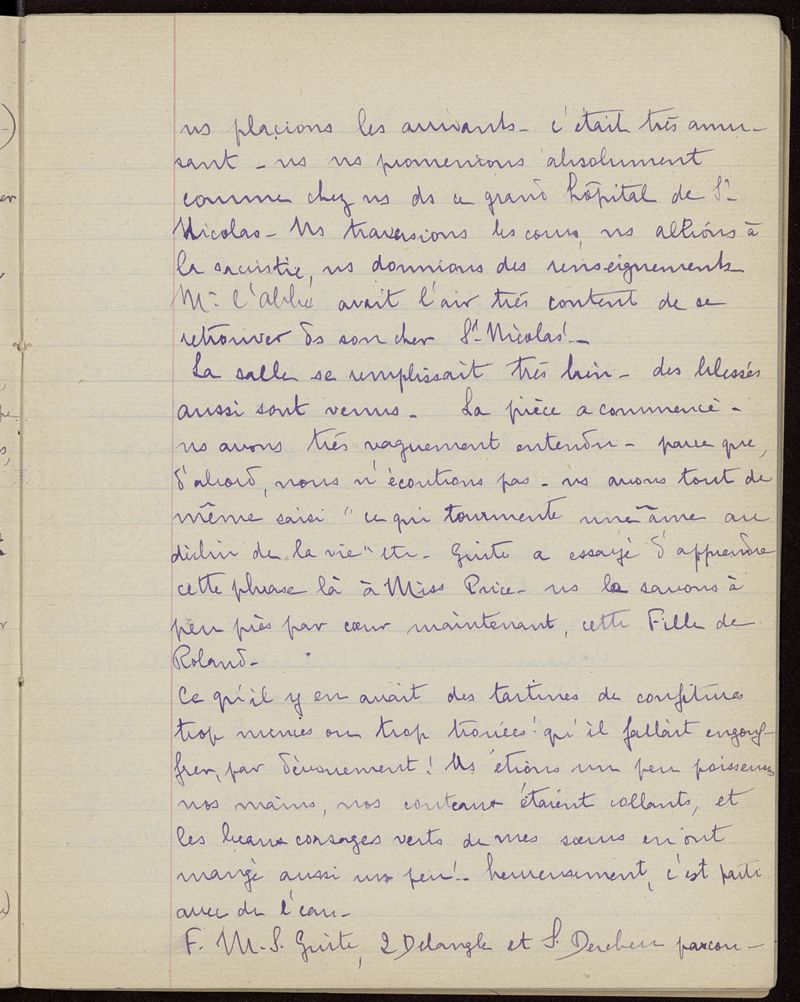 ns placions les arrivants - c'était très amu-
sant - ns ns promenions absolument
comme chez ns ds ce grand hôpital de St
Nicolas - Ns traversions les cours, ns allions à
la sacristie, ns donnions des renseignements
Mr l'Abbé avait l'air très content de se
retrouver ds son cher St Nicolas! -
La salle se remplissait très bien - des blessés
aussi sont venus - La pièce a commencé -
ns avons très vaguement entendu - parce que,
d'abord, nous n'écoutions pas - ns avons tout de
même saisi "ce qui tourmente une âme au
déclin de la vie" etc - Guite a essayé d'apprendre
cette phrase là à Miss Price - ns la savons à
peu près par cœur maintenant, cette Fille de
Roland -
Ce qu'il y en avait des tartines de confitures
trop minces ou trop trouées! qu'il fallait engouf-
frer, par dévouement! Ns étions un peu poisseuses
nos mains, nos couteaux étaient collants, et
les beaux corsages verts de mes sœurs en ont
mangé aussi un peu! - heureusement, c'est parti
avec de l'eau -
F. M. S. Guite, 2 Delangle et S. parcou-